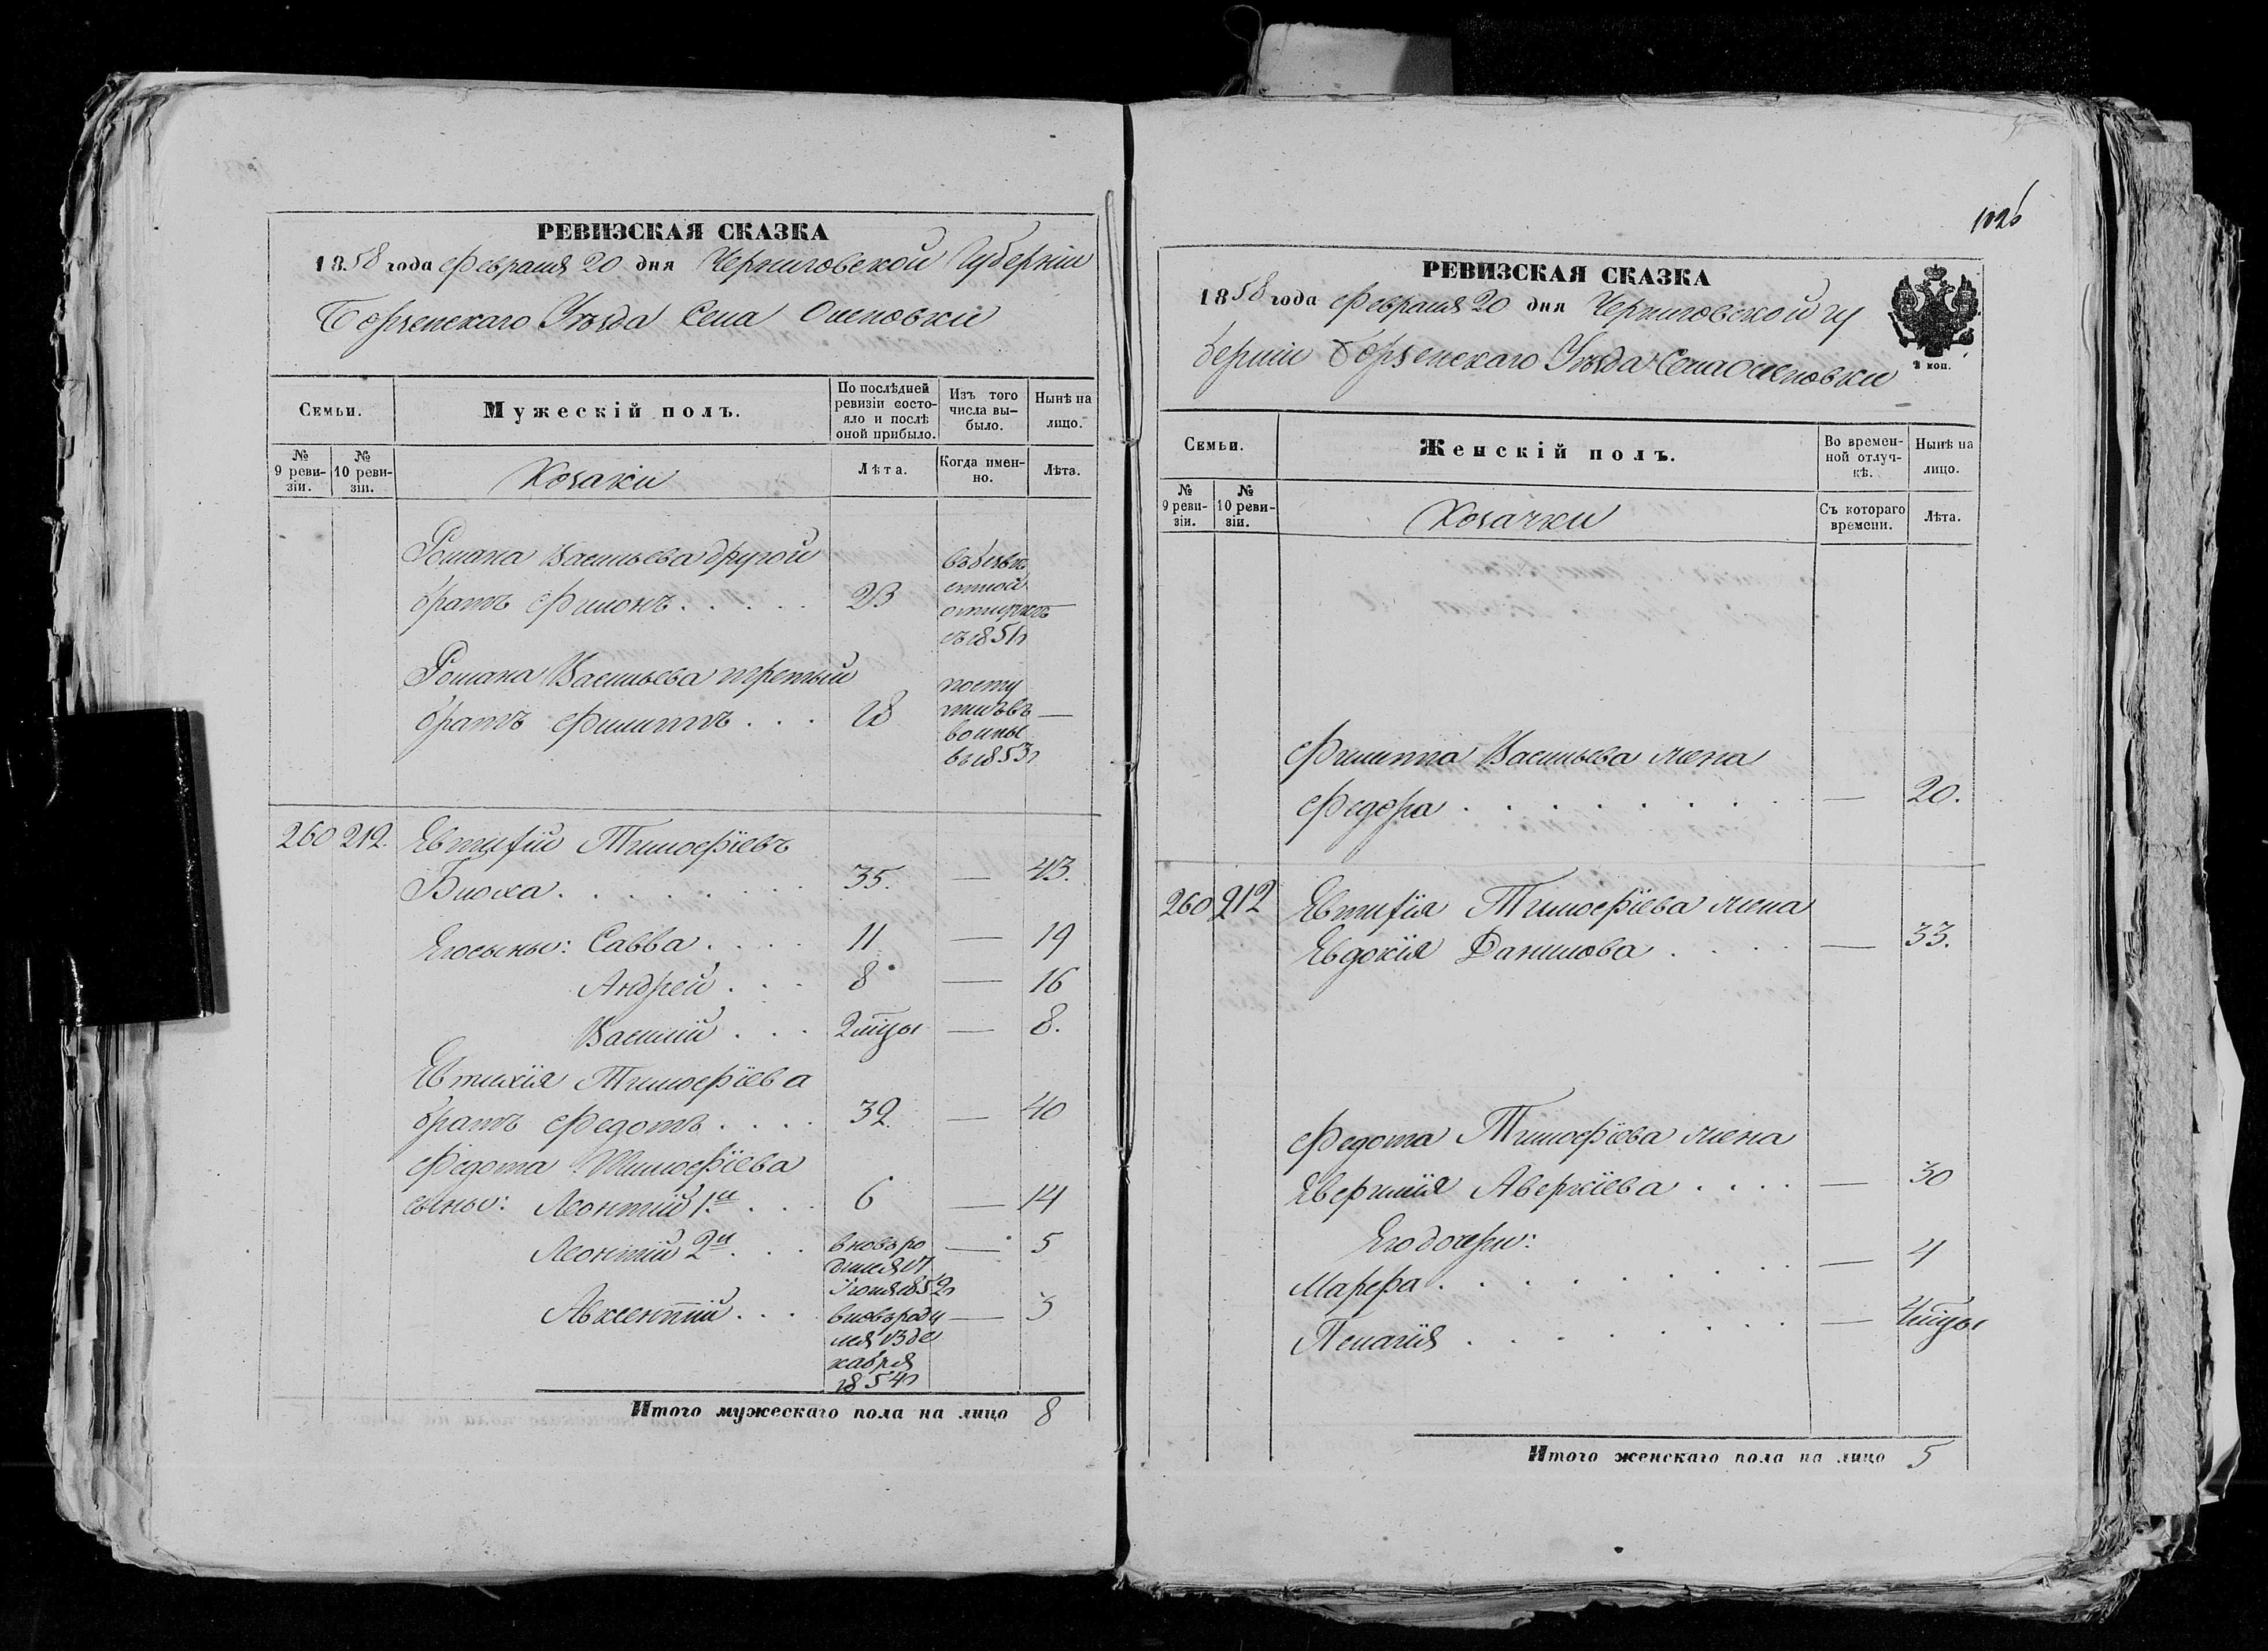 РЕВИЗСКАЯ СКАЗКА
1858 года Февраля 20 дня Черниговской Губерніи
Борзенскаго Уѣзда Села
Семьи.
Мужескій полъ.
По послѣдней ревизіи состояло и послѣ оной прибыло.
Изъ того числа выбыло.
Нынѣ на лицо.
№ 9 ревизіи.
№ 10 ревизіи.
Козаки
Лѣта.
Когда именно.
Лѣта.
Романа Васильева другой
братъ Филонъ. . . . . 23
съ 1851
Романа Васильева третий
братъ Филиппъ . . . 18
посту
въ
воины —
въ 1853
260 212. Евтифій Тимофіевъ
Блоха. . . . . . . . 35. — 43.
Его сыны: Савва. . . . 11 — 19
Андрей . . . 8 — 16
Василій . . . 2 мцы — 8.
Евтихія Тимофіева
братъ Федотъ. . . . 32. — 40
Федота Тимофіева
сыны: Леонтій 1й . . . 6 — 14
Леонтій 2й. . . вновь ро — 5
дился 17
Іюня 1852
Авксентій. . . вновь роди — 3
лся 13 де
кабря
1854
Итого мужескаго пола на лицо 8
1026
РЕВИЗСКАЯ СКАЗКА
1858 года Февраля 20 дня Черниговской Гу
берніи Борзенскаго Уѣзда Села
2 коп.
Семьи.
Женскій полъ.
Во временной отлучкѣ.
Нынѣ на лицо.
№ 9 ревизіи.
№ 10 ревизіи.
Козачки
Съ котораго времени.
Лѣта.
Филиппа Васильева жена
Федора . . . . . . . . — 20.
260 212 Евтифія Тимофіева жена
Евдокія Данилова . . . . — 33.
Федота Тимофіева жена
Аверкіева . . . . — 30
Его дочери:
Марфа. . . . . . . . . — 4
Пелагія . . . . . . . . — 4 мцы
Итого женскаго пола на лицо 5